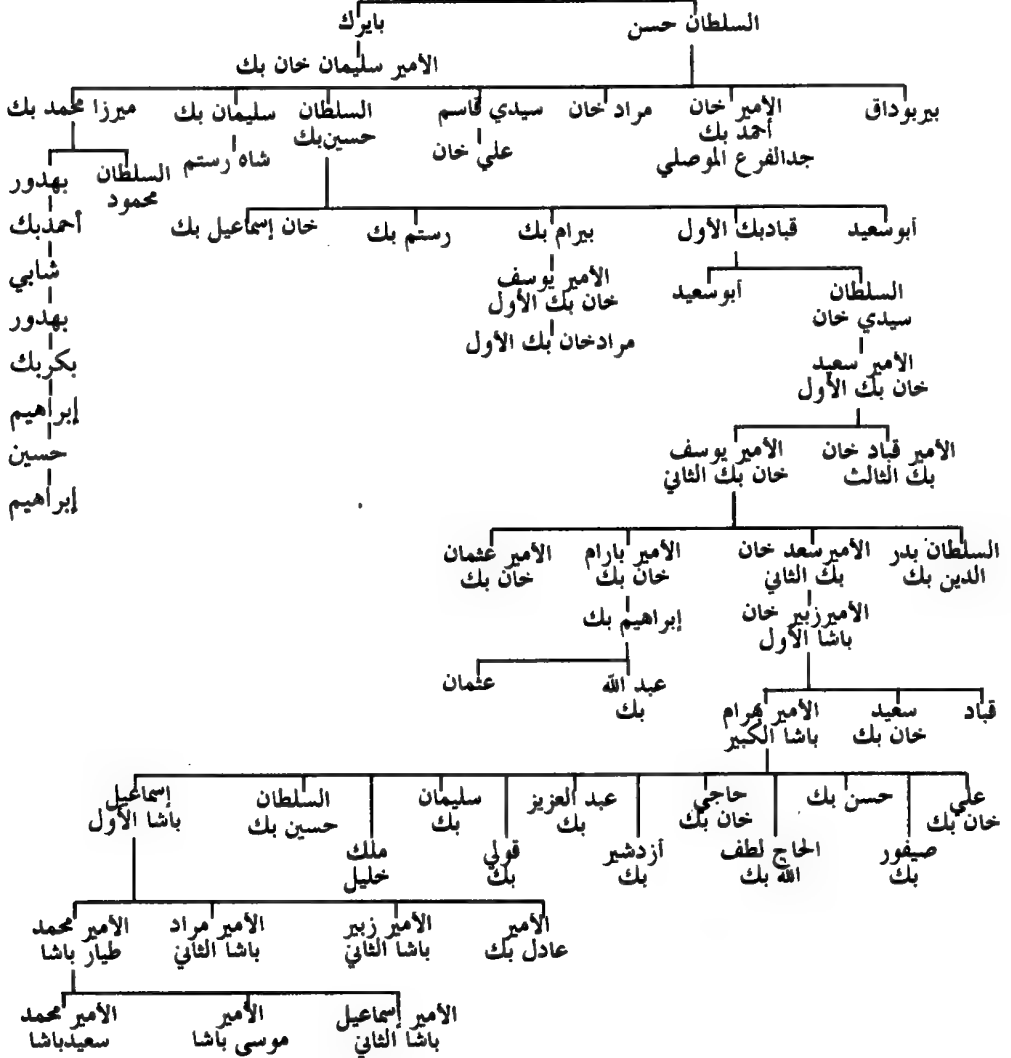 السلطان حسن
بايرك
الأمير سليمان خان بك
بيربوداق
الأمير خان
أحمد بك
جدالفرع الموصلي
مراد خان
سيدي قاسم
علي خان
السلطان
حسين بك
سليمان بك
شاه رستم
ميرزا محمد بك
السلطان
محمود
بهدور
أحمدبك
شابي
بهدور
بكربك
إبراهيم
حسين
إبراهيم
أبوسعيد
قبادبك الأول
بيرام بك
رستم بك
خان إسماعيل بك
الأمير يوسف
خان بك الأول
مرادخان بك الأول
السلطان
سيدي خان
أبوسعيد
الأمير سعيد
خان بك الأول
الأمير قباد خان
بك الثالث
الأمير يوسف
خان بك الثاني
السلطان بدر
الدين بك
الأمير سعد خان
بك الثاني
الأمير بارام
خان بك
الأمير عثمان
خان بك
الأمير زبير خان
باشا الأول
إبراهيم بك
عبد الله
بك
عثمان
قباد
سعيد
خان بك
الأمير بهرام
باشا الكبير
علي
خان بك
صيفور
بك
حسن بك
الحاج لطف
الله بك
حاجي
خان بك
أزدشير
بك
عبد العزيز
بك
قولي
بك
سليمان
بك
ملك
خليل
السلطان
حسين بك
إسماعيل
باشا الأول
الأمير
عادل بك
الأمير زبير
باشا الثاني
الأمير مراد
باشا الثاني
الأمير محمد
طيار باشا
الأمير إسماعيل
باشا الثاني
الأمير
موسى باشا
الأمير محمد
سعيدباشا